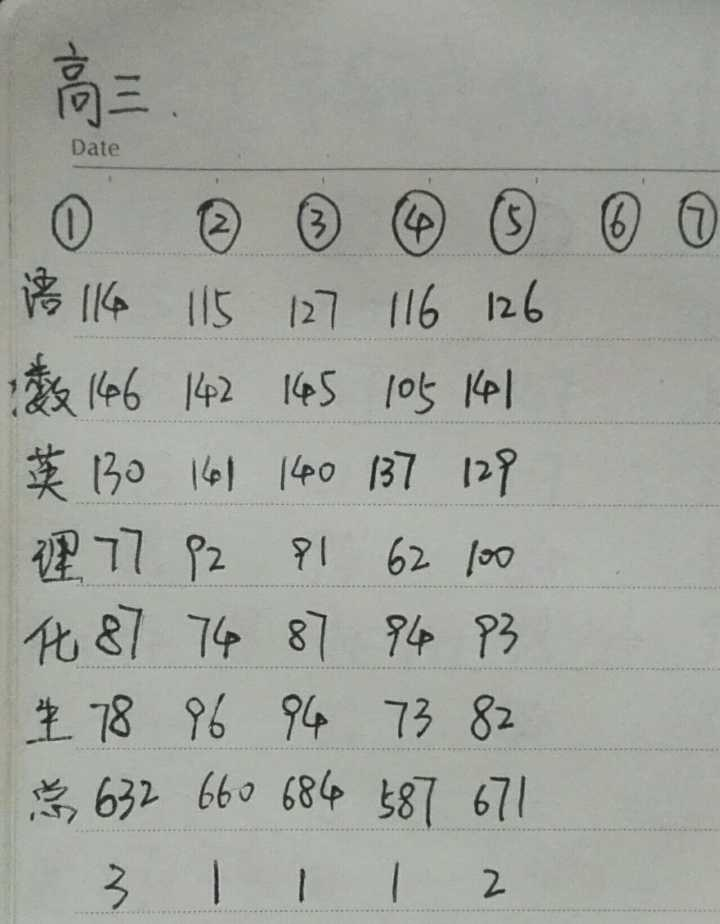 高三.
Date
① ② ③ ④ ⑤ ⑥ ⑦
语 114 115 127 116 126
数 146 142 145 105 141
英 130 141 140 137 129
理 77 92 91 62 100
化 87 74 87 94 93
生 78 96 94 73 82
总 632 660 684 587 671
3 1 1 1 2